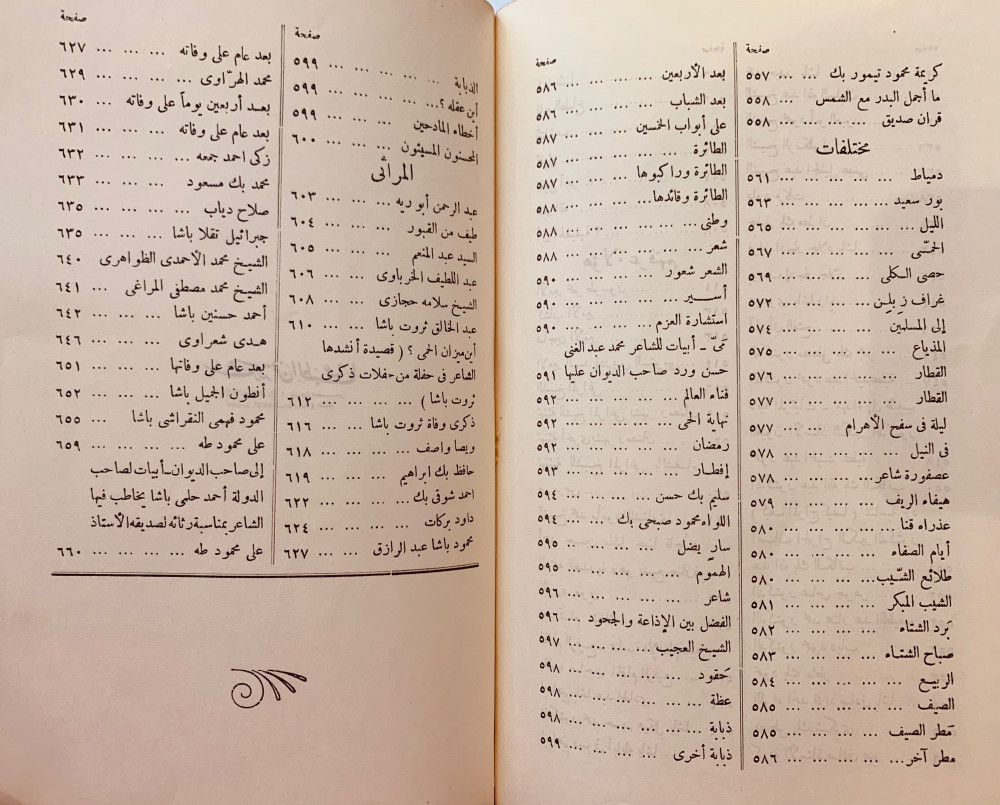 صفحة
كريمة محمود تيمور بك ... ... ٥٥٧
ما أجمل البدر مع الشمس ... ٥٥٨
قران صديق ... ... ... ... ٥٥٨
مختلفات
دمياط ... ... ... ... ... ٥٦١
بور سعيد ... ... ... ... ... ٥٦٣
الليل ... ... ... ... ... ٥٦٥
الحمّى ... ... ... ... ... ٥٦٧
حصى الكلى ... ... ... ... ٥٦٩
غراف زِبِلِن ... ... ... ... ٥٧٢
إلى المسلمين ... ... ... ... ٥٧٤
المذياع ... ... ... ... ... ٥٧٥
القطار ... ... ... ... ... ٥٧٦
القطار ... ... ... ... ... ٥٧٧
ليلة فى سفح الأهرام ... ... ٥٧٧
فى النيل ... ... ... ... ... ٥٧٨
عصفورة شاعر ... ... ... ... ٥٧٨
هيفاء الريف ... ... ... ... ٥٧٩
عذراء قنا ... ... ... ... ٥٨٠
أيام الصفاء ... ... ... ... ٥٨٠
طلائع الشّيب ... ... ... ... ٥٨٠
الشيب المبكر ... ... ... ... ٥٨١
بَرد الشتاء ... ... ... ... ٥٨٢
صباح الشتاء ... ... ... ... ٥٨٣
الربيع ... ... ... ... ... ٥٨٤
الصيف ... ... ... ... ... ٥٨٥
مَطر الصيف ... ... ... ... ٥٨٥
مطر آخر ... ... ... ... ... ٥٨٦
صفحة
بعد الأربعين ... ... ... ... ٥٨٦
بعد الشباب ... ... ... ... ٥٨٦
على أبواب الخمسين ... ... ... ٥٨٧
الطائرة ... ... ... ... ... ٥٨٧
الطائرة وراكبوها ... ... ... ٥٨٧
الطائرة وقائدها ... ... ... ... ٥٨٨
وطنى ... ... ... ... ... ٥٨٨
شعر ... ... ... ... ... ٥٨٨
الشعر شعور ... ... ... ... ٥٩٠
أسير ... ... ... ... ... ٥٩٠
استشارة العزم ... ... ... ... ٥٩٠
مَىّ ـ أبيات للشاعر محمد عبد الغنى
حسن ورد صاحب الديوان عليها ٥٩١
فناء العالم ... ... ... ... ... ٥٩٢
نهاية الحى ... ... ... ... ... ٥٩٢
رمضان ... ... ... ... ... ٥٩٢
إفطار ... ... ... ... ... ٥٩٣
سليم بك حسن ... ... ... ... ٥٩٤
اللواء محمود صبحى بك ... ... ٥٩٤
سارٍ يضل ... ... ... ... ٥٩٥
الهمّوم ... ... ... ... ... ٥٩٥
شاعر ... ... ... ... ... ٥٩٦
الفضل بين الإذاعة والجحود ... ٥٩٦
الشيخ العجيب ... ... ... ... ٥٩٧
حَقود ... ... ... ... ... ٥٩٨
عظة ... ... ... ... ... ٥٩٨
ذبابة ... ... ... ... ... ٥٩٨
ذبابة أخرى ... ... ... ... ٥٩٩
صفحة
الذبابة ... ... ... ... ... ٥٩٩
أين عقله ؟ ... ... ... ... ٥٩٩
أخطاء المادحين ... ... ... ... ٥٩٩
المحسنون المسيئون ... ... ... ٦٠٠
المراثى
عبد الرحمن أبو ريه ... ... ... ٦٠٣
طيف من القبور ... ... ... ... ٦٠٤
السيد عبد المنعم ... ... ... ٦٠٥
عبد اللطيف الخرباوى ... ... ٦٠٦
الشيخ سلامه حجازى ... ... ٦٠٨
عبد الخالق ثروت باشا ... ... ٦١٠
أين ميزان الحمى ؟ ( قصيدة أنشدها
الشاعر فى حفلة من حفلات ذكرى
ثروت باشا ) ... ... ... ... ٦١٢
ذكرى وفاة ثروت باشا ... ... ٦١٦
ويصا واصف ... ... ... ... ٦١٨
حافظ بك ابراهيم ... ... ... ٦١٩
احمد شوقى بك ... ... ... ... ٦٢٢
داود بركات ... ... ... ... ٦٢٤
محمود باشا عبد الرازق ... ... ٦٢٧
صفحة
بعد عام على وفاته ... ... ... ٦٢٧
محمد الهرّاوى ... ... ... ... ٦٢٩
بعد أربعين يوماً على وفاته ... ٦٣٠
بعد عام على وفاته ... ... ... ٦٣١
زكى احمد جمعه ... ... ... ... ٦٣٢
محمد بك مسعود ... ... ... ... ٦٣٣
صلاح دياب ... ... ... ... ٦٣٥
جبرائيل تقلا باشا ... ... ... ٦٣٥
الشيخ محمد الأحمدى الظواهرى ٦٤٠
الشيخ محمد مصطفى المراغى ... ٦٤١
أحمد حسنين باشا ... ... ... ٦٤٢
هدى شعراوى ... ... ... ... ٦٤٦
بعد عام على وفاتها ... ... ... ٦٥١
أنطون الجميل باشا ... ... ... ٦٥٢
محمود فهمى النقراشى باشا ... ٦٥٥
على محمود طه ... ... ... ... ٦٥٩
إلى صاحب الديوان ـ أبيات لصاحب
الدولة أحمد حلمى باشا يخاطب فيها
الشاعر بمناسبة رثائه لصديقه الأستاذ
على محمود طه ... ... ... ... ٦٦٠